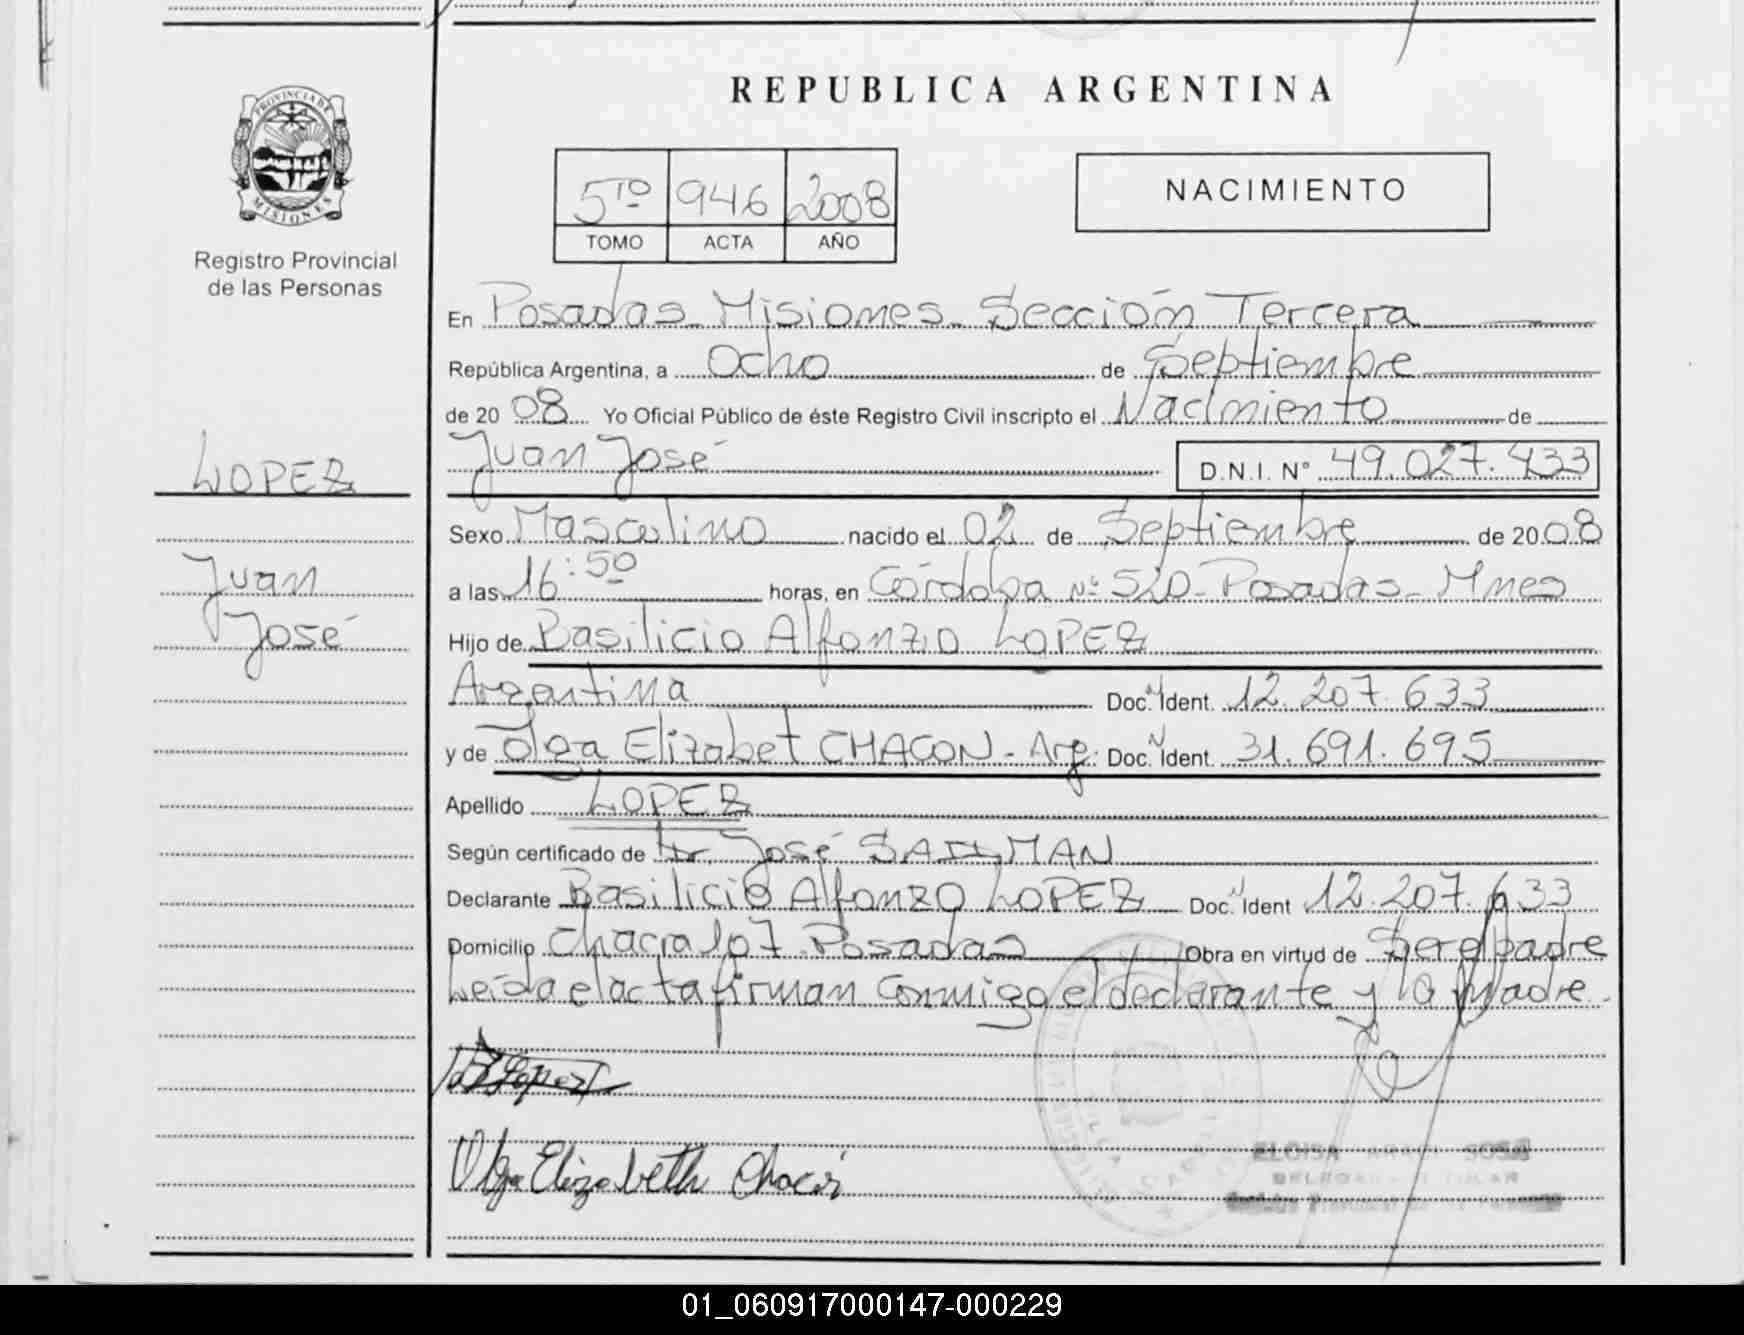 REPUBLICA ARGENTINA
PROVINCIA DE
MISIONES
Registro Provincial
de las Personas
5TO 946 2008
TOMO ACTA AÑO
NACIMIENTO
En Posadas Misiones Sección Tercera
República Argentina, a Ocho de Septiembre
de 20 08 Yo Oficial Público de éste Registro Civil inscripto el Nacimiento de
LOPEZ
Juan José D.N.I. N° 49.027.433
Sexo Masculino nacido el 02 de Septiembre de 20 08
Juan
a las 16:50 horas, en Córdoba N° 520 - Posadas - Mnes
José
Hijo de Basilicio Alfonzo LOPEZ
Argentina Doc. Ident. 12.207.633
y de Olga Elizabet CHACON - Arg. Doc. Ident. 31.691.695
Apellido LOPEZ
Según certificado de Dr. José
Declarante Basilicio Alfonzo LOPEZ Doc. Ident 12.207.633
Domicilio Chacra 107 Posadas Obra en virtud de Ser el padre
Leída el acta firman conmigo el declarante y la Madre.
Lopez
Olga Elizabeth Chacón
ELOISA SOSA
01_060917000147-000229